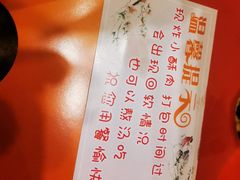 温馨提示
现炸小酥肉打包时间过
会出现回软情况
也可以熬汤吃
祝您用餐愉快